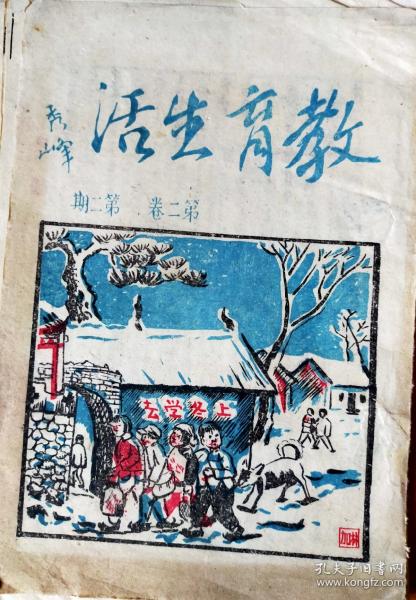 教育生活
秀峰
第二卷 第二期
上冬学去
孔夫子旧书网
www.kongfz.com